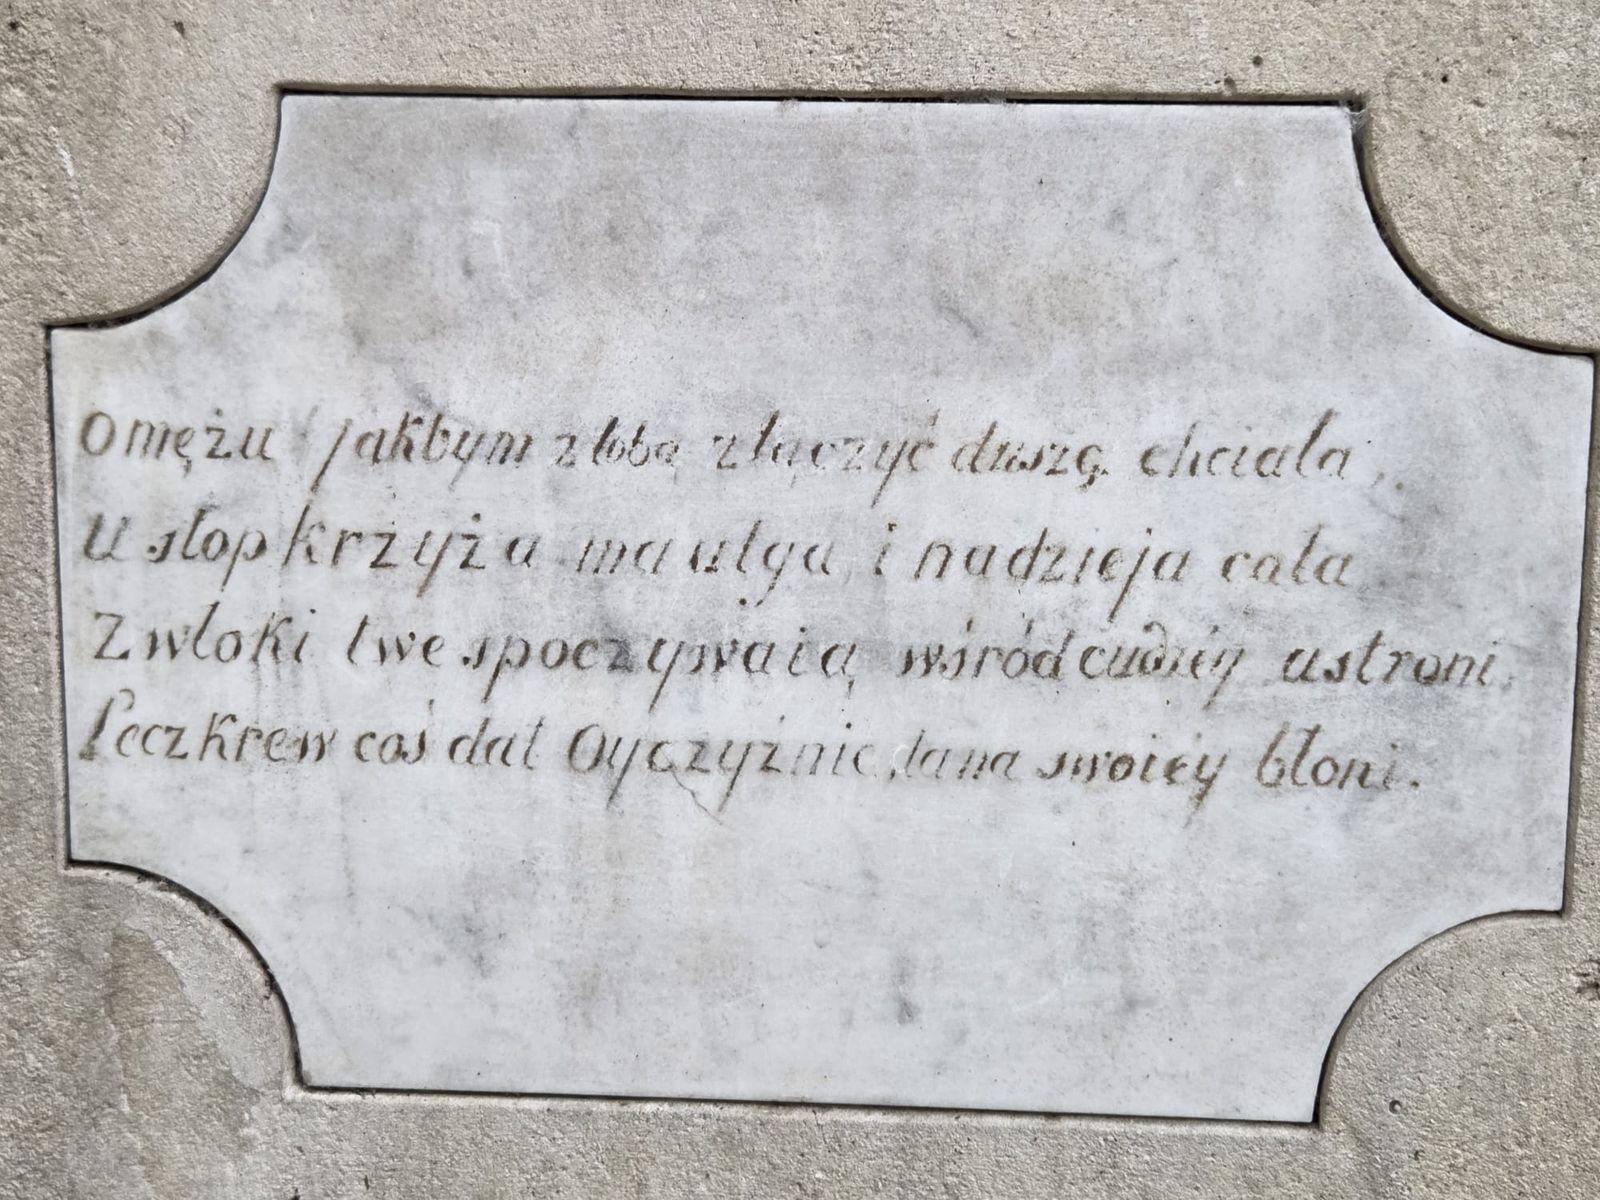 O mężu! jakbym z tobą złączyć duszę chciała,
U stop krzyża ma ulga, i nadzieja cała
Zwłoki twe spoczywaią wśród cudzéy ustroni,
Lecz krew coś dał Oyczyźnie, ta na swoiéy błoni.